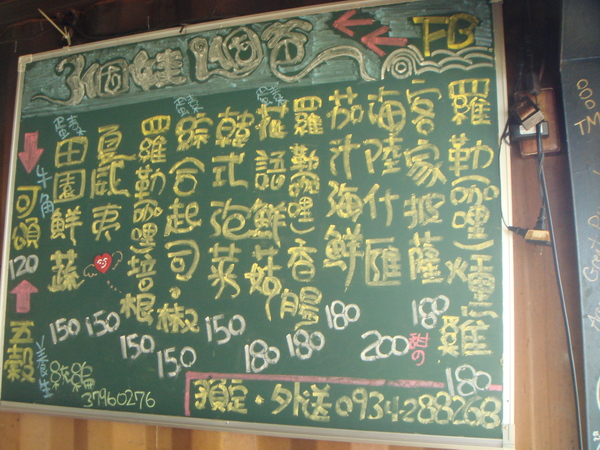 3個娃 1個爸
FB
羅勒(咖哩)燻雞 180
客家披薩 180
甜の
海陸什匯 200
茄汁海鮮 180
羅勒(咖哩)香腸 180
菇語鮮菇 180
韓式泡菜 150
蛋素
綜合起司.椒 150
羅勒(咖哩)培根 150
夏威夷 150
蛋素
田園鮮蔬 150
牛角
可頌
120
五穀
養生
統編
37960276
預定.外送 0934-288268